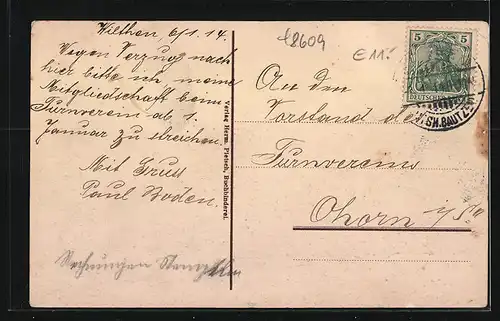 Wilthen, 6/1.14.
Wegen Verzug nach
hier bitte ich meine
Mitgliedschaft beim
Turnverein ab 1.
Januar zu streichen.
Mit Gruss
Paul Boden.
Verlag Herm. Pietsch, Buchbinderei.
£8609
€11.
5 5
DEUTSCHES
SH. BAUTZEN
An den
Vorstand des
Turnvereins
Ohorn i/Sa